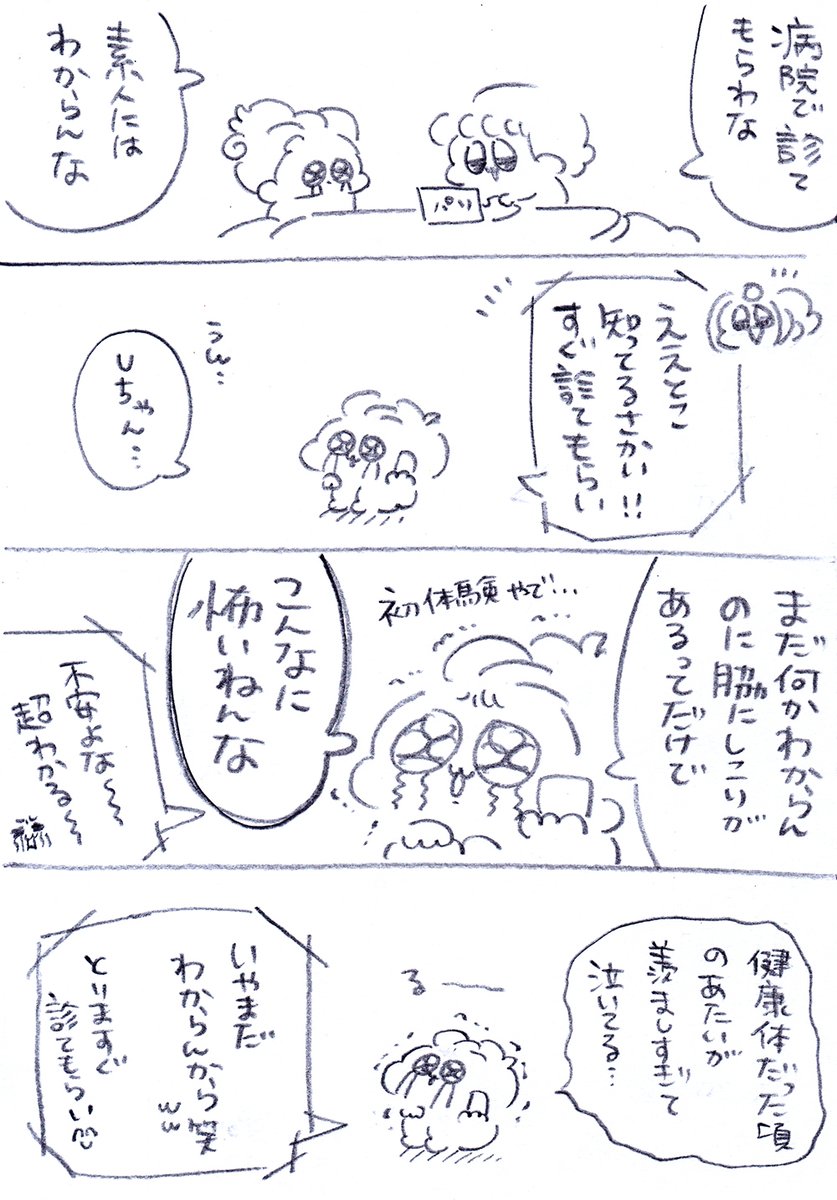 病院で診て
もらわな
パリ
素人には
わからんな
ええとこ
知ってるさかい!!
すぐ診てもらい
うw…
Uちゃん…
まだ何かわからん
のに脇にしこりが
あるってだけで
初体験やで…
こんなに
怖いねんな
不安よな〜
超わかる〜
健康体だった頃
のあたいが
羨ましすぎて
泣いてる…
るーー
いやまだ
わからんから笑
ww
とりますぐ
診てもらい